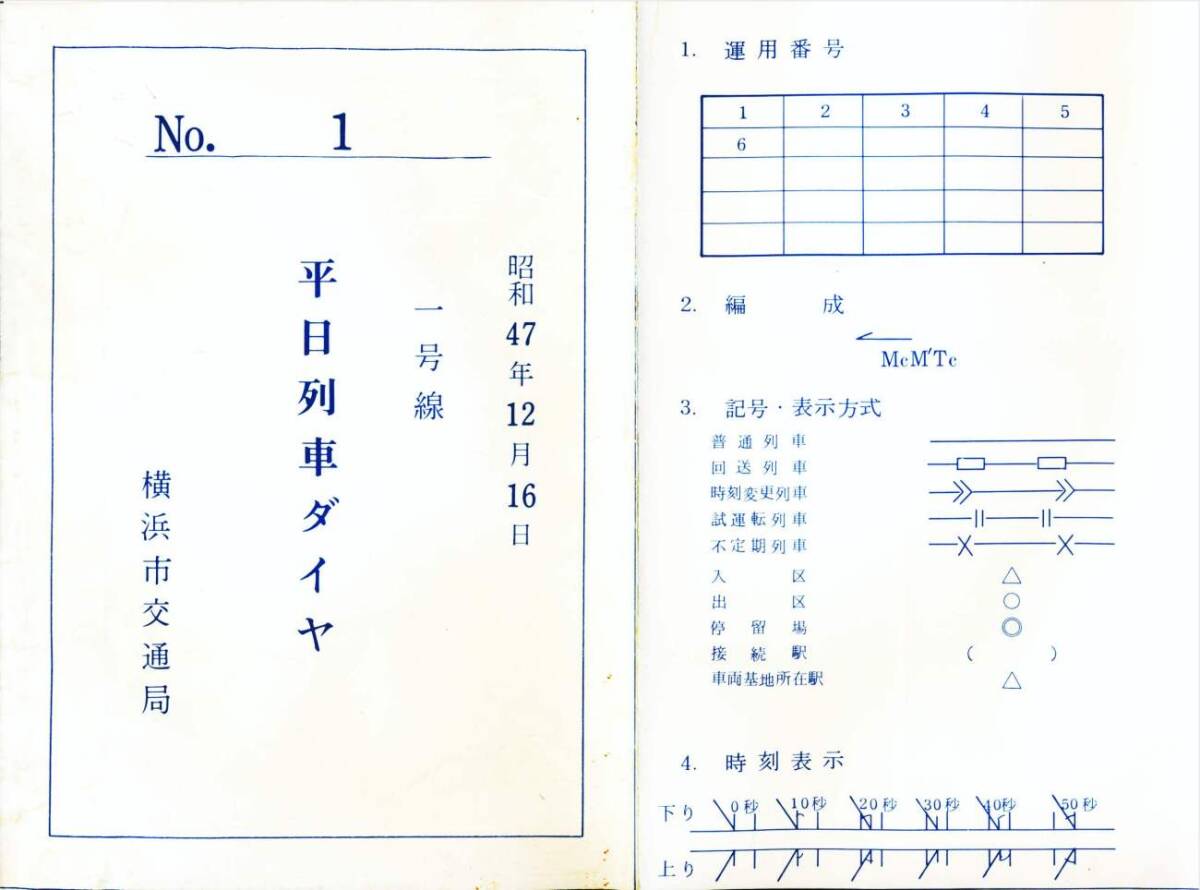 No. 1
昭和47年12月16日
一号線
平日列車ダイヤ
横浜市交通局
1. 運用番号
1 2 3 4 5
6
2. 編成
McM'Tc
3. 記号・表示方式
普通列車
回送列車
時刻変更列車
試運転列車
不定期列車
入区
出区
停留場
接続駅 ( )
車両基地所在駅
4. 時刻表示
下り 0秒 10秒 20秒 30秒 40秒 50秒
上り